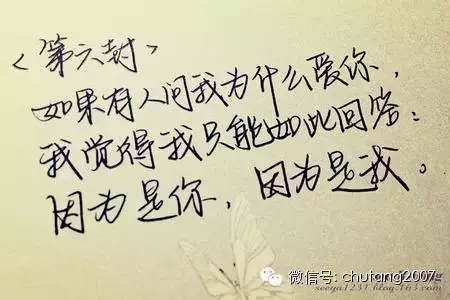 <第六封>
如果有人问我为什么爱你，
我觉得我只能如此回答：
因为是你，因为是我。
微信号: chutang2007
seeyu1231.blog.163.com